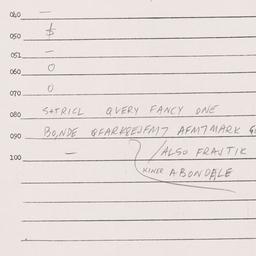 040 —
050 $
051 —
060 0
070 0
080 S+TRICL QVERY FANCY ONE
090 BONDE AFM7MARK
/ALSO FRAJTIK
100 —
KINER ABONDALE